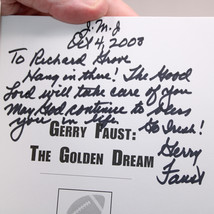 J.M.J
Oct 4, 2008
To Richard Grove
Hang in there! The Good
Lord will take care of you
May God continue to bless
you in life. Go Irish!
GERRY FAUST:
THE GOLDEN DREAM
Gerry
Faust